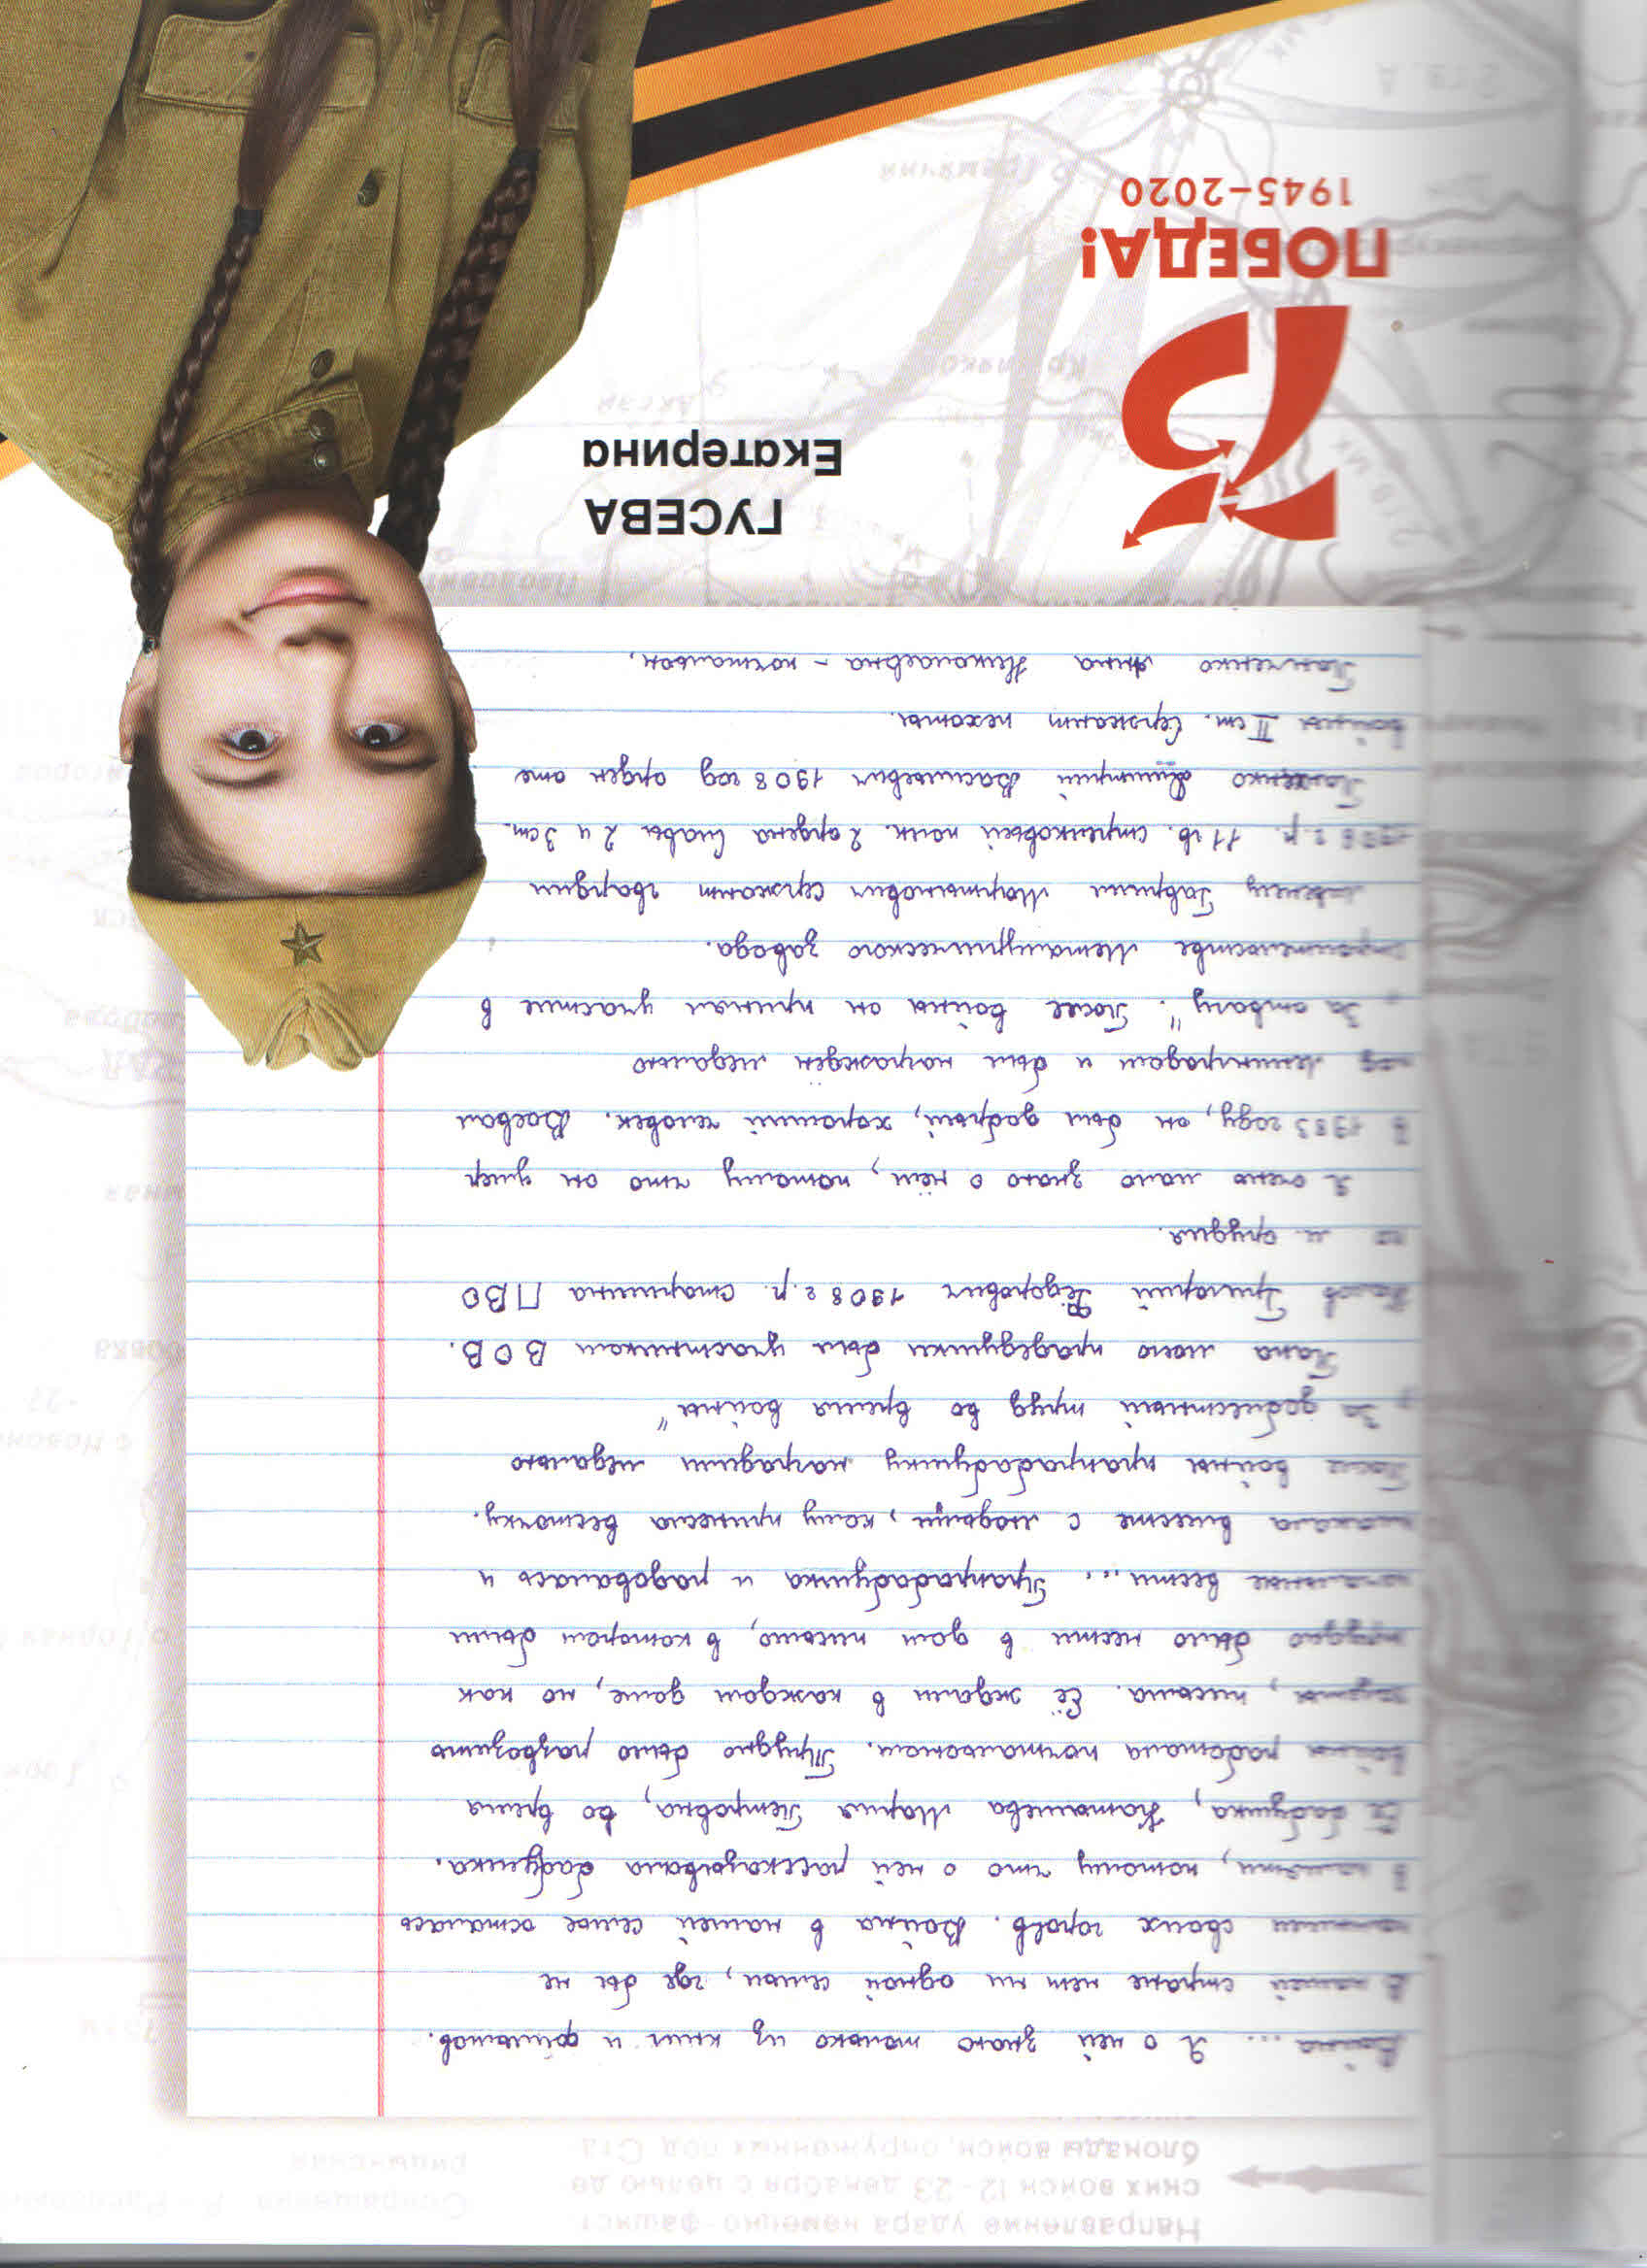 Направление удара немецко-фашист
ских войск 12-23 декабря с целью де
блокады войск, окруженных под Ста
Война... Я о ней знаю только из книг и фильмов.
В нашей стране нет ни одной семьи, где бы не
помнили своих героев. Война в нашей семье осталась
в памяти, потому что о ней рассказывала бабушка.
Её бабушка, Катышева Мария Петровна, во время
войны работала почтальоном. Трудно было развозить
газеты, письма. Её ждали в каждом доме, но как
трудно было нести в дом письмо, в котором были
печальные вести... Прапрабабушка и радовалась и
плакала вместе с людьми, кому принесла весточку.
После войны прапрабабушку наградили медалью
„За доблестный труд во время войны"
Папа моего прадедушки был участником ВОВ.
Григорий Фёдорович 1908 г.р. старшина ПВО
м. орудия.
Я очень мало знаю о нём, потому что он умер
в 1983 году, он был добрый, хороший человек. Воевал
под Ленинградом и был награждён медалью
„За отвагу". После войны он принял участие в
строительстве Металургического завода.
Гавриил Мартынович сержант гвардии
г.р. 11 гв. стрелковый полк. 2 ордена Славы 2 и 3 ст.
Панченко Дмитрий Васильевич 1908 год орден оте
войны II ст. Сержант пехоты.
Панченко Анна Николаевна - почтальон.
ГУСЕВА
Екатерина
Аксай
75
ПОБЕДА!
1945-2020
Гремячий
2 гв. А